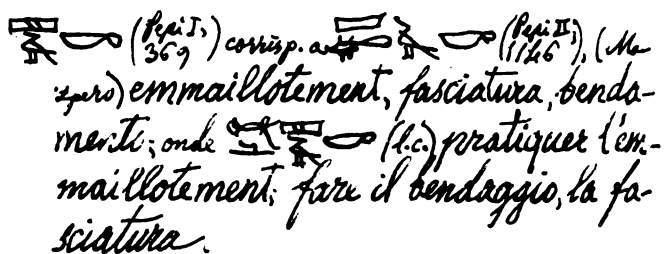 (Pepi I, 369) corrisp. a (Pepi II, 1146), (Ma-
spero) emmaillotement, fasciatura, benda-
mento; onde (l.c.) pratiquer l'em-
maillotement; fare il bendaggio, la fa-
sciatura.